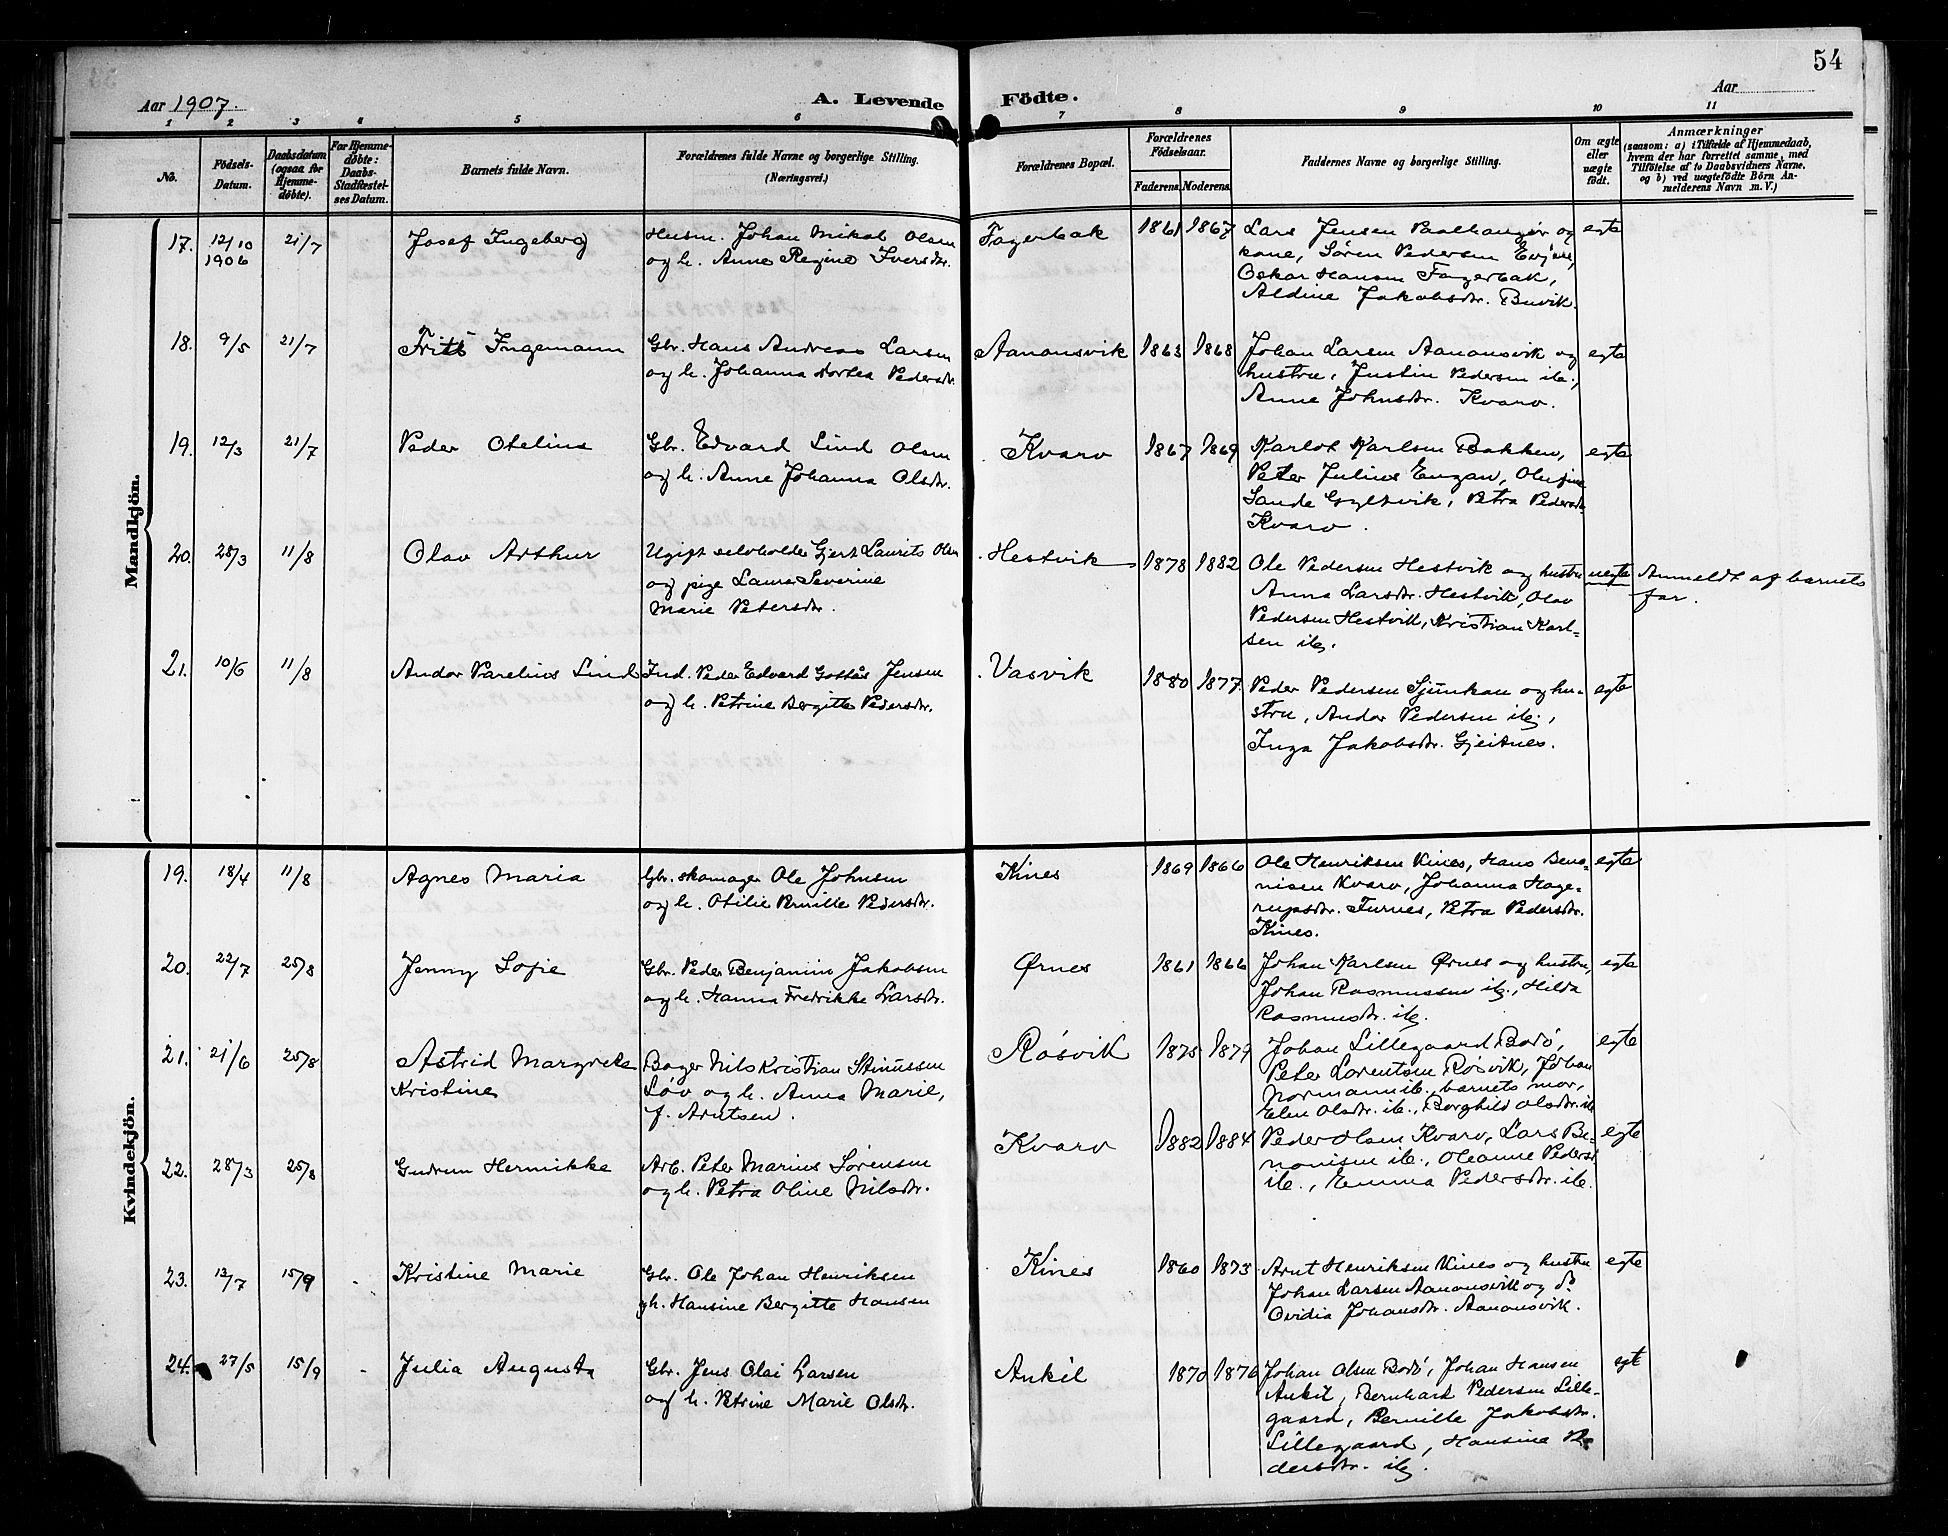 54
Aar 1907. A. Levende Födte. Aar
1 2 3 4 5 6 7 8 9 10 11
No.
Födsels-Datum.
Daabsdatum (ogsaa for Hjemme-döbte).
For Hjemme-döbte: Daabs-Stadfæstel-ses Datum.
Barnets fulde Navn.
Forældrenes fulde Navne og borgerlige Stilling. (Næringsvei.)
Forældrenes Bopæl.
Forældrenes Födselsaar.
Faderens. Moderens.
Faddernes Navne og borgerlige Stilling.
Om ægte eller uægte födt.
Anmærkninger
(saasom: a) i Tilfælde af Hjemmedaab, hvem der har forrettet samme, med Tilföielse af to Daabsvidners Navne. og b) ved uægtefödte Börn An-melderens Navn m. V.)
Mandkjön.
17. 12/10 1906 21/7 Josef Ingeberg
Husm. Johan Mikal Olsen
og h. Anne Regine Iversdtr.
Fagerbak 1861 1867
Lars Jensen og
kone, Søren Pedersen
Oskar Hansen Fagerbak,
Aldine Jakobsdtr. Buvik.
egte
18. 9/5 21/7 Frits Ingemann
Gbr. Hans Andreas Larsen
og h. Johanna Dortea Pedersdtr.
Aanonsvik 1863 1868
Johan Larsen Aanonsvik og
hustru, Justin Pedersen ib.,
Anne Johnsdtr. Kvarv.
egte
19. 12/3 21/7 Peder Otelius
Gbr. Edvard Lind Olsen
og h. Anne Johanna Olsdtr.
Kvarv 1867 1869
Karlot Karlsen Bakken,
Peter Julius Engan,
Sande Gyltvik, Petra Pedersdtr.
Kvarv.
egte
20. 28/3 11/8 Olav Arthur
Ugift selvholder Gjert Laurits Olsen
og pige Laura Severine
Marie Petersdtr.
Hestvik 1878 1882
Ole Pedersen Hestvik og hustru
Anna Larsdtr. Hestvik, Olav
Pedersen Hestvik, Kristian Karl-
sen ib.
uegte
Anmeldt af barnets
far.
21. 10/6 11/8 Andor Parelius Lind
Ind. Peder Edvard Gottås Jensen
og h. Petrine Bergitte Pedersdtr.
Vasvik 1880 1877
Peder Pedersen Sjunkan og hu-
stru, Andor Pedersen ib.,
Inga Jakobsdtr. Gjeitnes.
egte
Kvindekjön.
19. 18/4 11/8 Agnes Maria
Gbr. skomager Ole Johnsen
og h. Otilie Pernille Pedersdtr.
Kines 1869 1866
Ole Henriksen Kines, Hans Beno-
nisen Kvarv, Johanna Hage-
rupsdtr. Furnes, Petra Pedersdtr.
Kines.
egte
20. 22/7 25/8 Jenny Sofie
Gbr. Peder Benjamin Jakobsen
og h. Hanna Fredrikke Larsdtr.
Ørnes 1861 1866
Johan Karlsen Ørnes og hustru,
Johan Rasmussen ib., Hilda
Rasmusdtr. ib.
egte
21. 21/6 25/8 Astrid Margrete
Kristine
Bager Nils Kristian Stinussen
Løv og h. Anna Marie,
f. Arntsen.
Røsvik 1875 1879
Johan Lillegaard Bodø,
Peter Lorentsen Røsvik, Johan
Normann ib., barnets mor,
Elen Olsdtr. ib., Borghild Olsdtr. ib
egte
22. 28/3 25/8 Gudrun Hermikke
Arb. Peter Marius Sørensen
og h. Petra Oline Nilsdtr.
Kvarv 1882 1884
Peder Olsen Kvarv, Lars Be-
nonisen ib., Oleanne Pedersd
ib., Emma Pedersdtr. ib.
egte
23. 13/7 15/9 Kristine Marie
Gbr. Ole Johan Henriksen
gh. Hansine Bergitte Hansen
Kines 1860 1873
Arnt Henriksen Kines og hustru
Johan Larsen Aanonsvik og do
Ovidia Johansdtr. Aanonsvik.
egte
24. 27/5 15/9 Julia Augusta
Gbr. Jens Olai Larsen
og h. Petrine Marie Olsdtr.
Ankil 1870 1876
Johan Olsen Bodø, Johan Hansen
Ankil, Bernhard Pedersen Lille-
gaard, Bernille Jakobsdtr.
Lillegaard, Hansine Pe-
dersdtr. ib.
egte